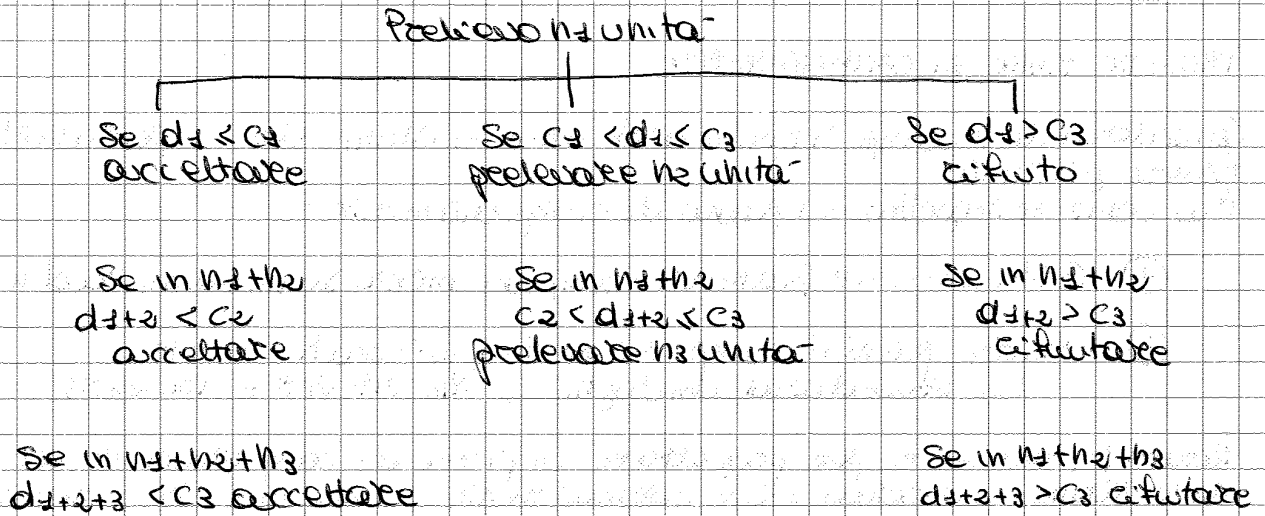 Prelievo n1 unità
Se d1 ≤ c1
accettare
Se c1 < d1 ≤ c3
prelevare n2 unità
Se d1 > c3
rifiuto
Se in n1+n2
d1+2 < c2
accettare
Se in n1+n2
c2 < d1+2 ≤ c3
prelevare n3 unità
Se in n1+n2
d1+2 > c3
rifiutare
Se in n1+n2+n3
d1+2+3 < c3 accettare
Se in n1+n2+n3
d1+2+3 > c3 rifiutare